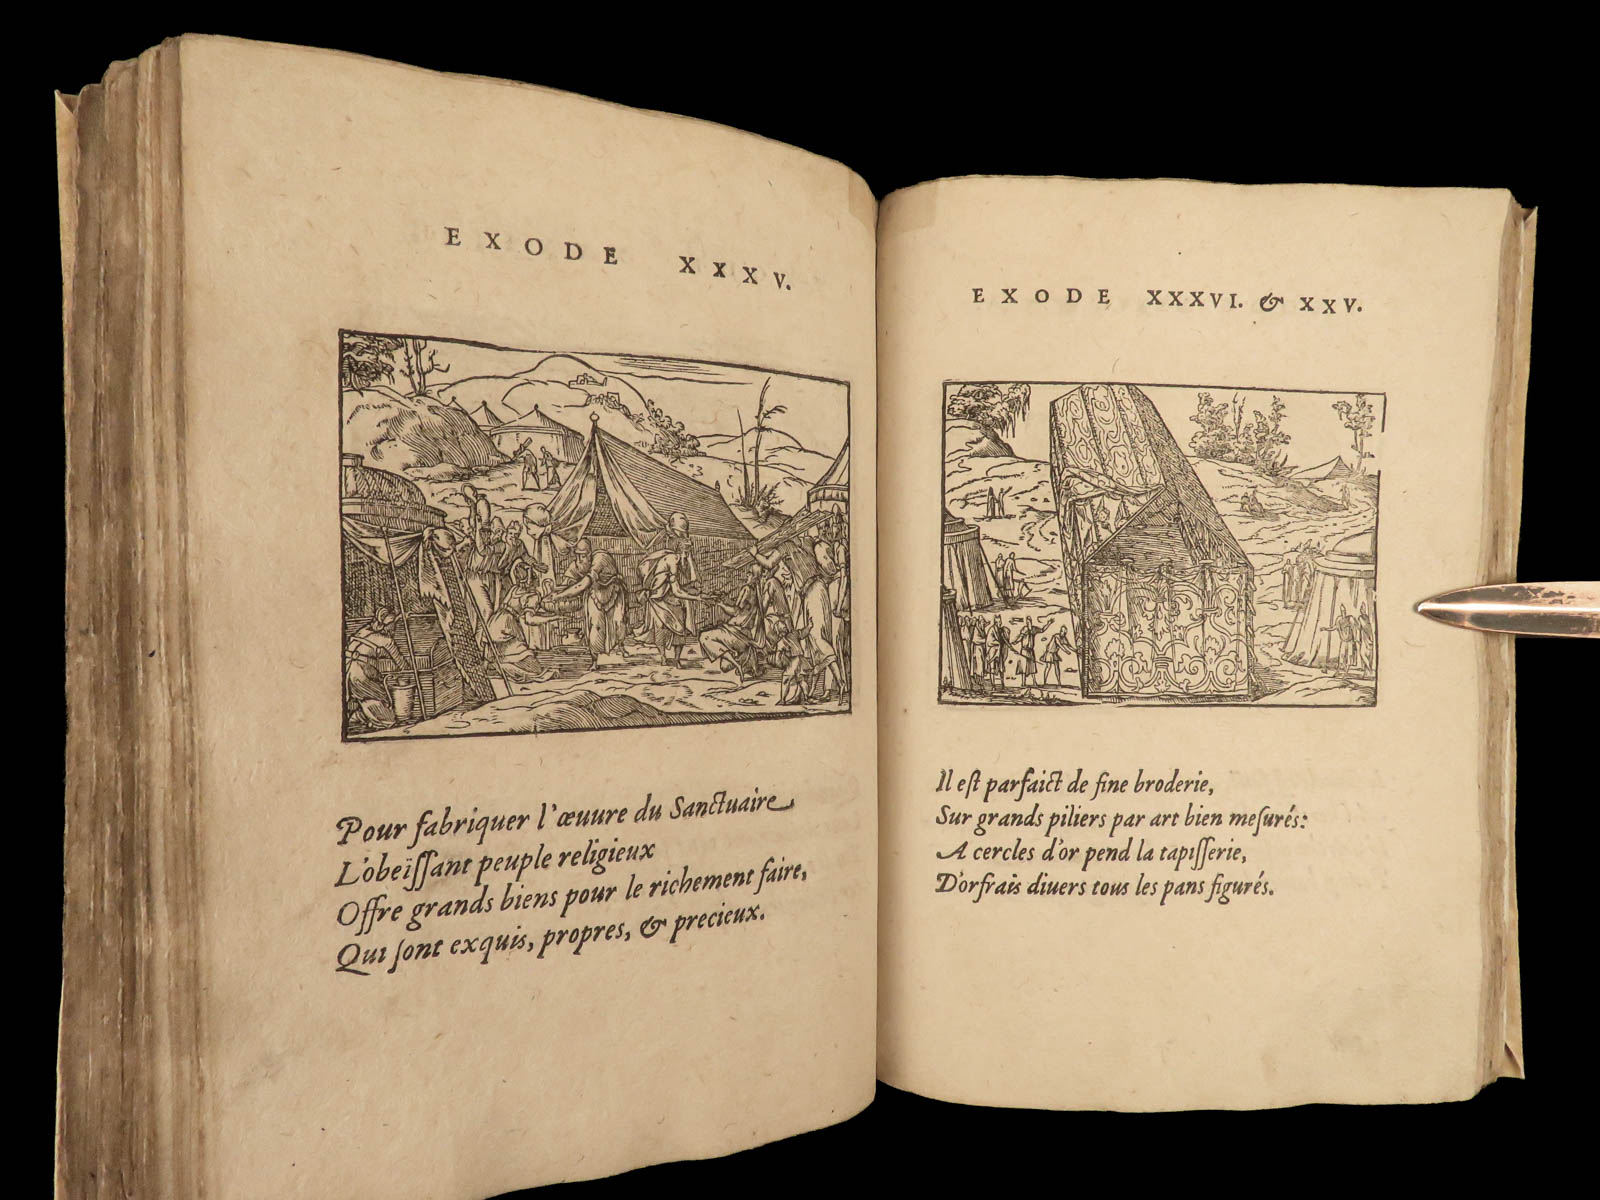 EXODE XXXV.
Pour fabriquer l'œuure du Sanctuaire
L'obeïſſant peuple religieux
Offre grands biens pour le richement faire,
Qui ſont exquis, propres, & precieux.
EXODE XXXVI. & XXV.
Il eſt parfaict de fine broderie,
Sur grands piliers par art bien meſurés:
A cercles d'or pend la tapiſſerie,
D'orfrais diuers tous les pans figurés.